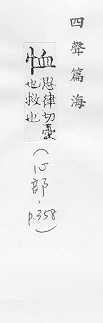 四聲篇海
恤 思律切憂
也救也
(心部, p.358)